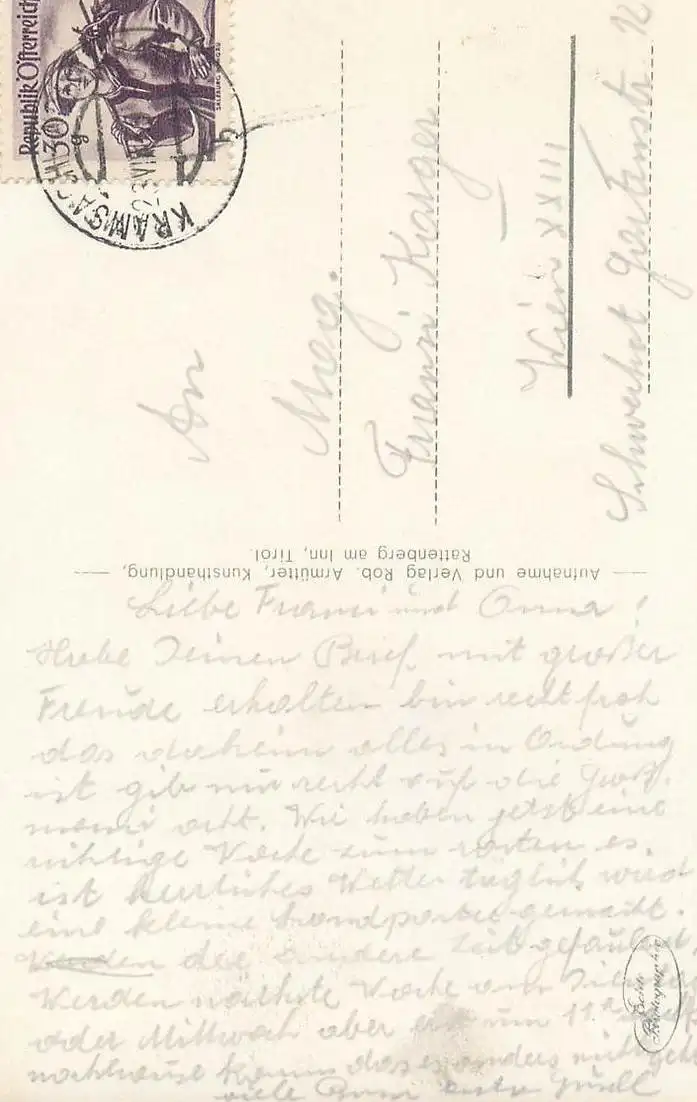 Republik Österreich
30
KRAMSACH
An
Franzi Karger
Wien XXIII
Schwechat
Aufnahme und Verlag Rob. Armütter, Kunsthandlung,
Rattenberg am Inn, Tirol.
Liebe Franzi und Oma!
Habe Deinen Brief mit großer
Freude erhalten bin recht froh
das daheim alles in Ordnung
ist gib nur recht auf die Groß.
mami acht. Wir haben jetzt eine
richtige Woche zum rasten es
ist herrliches Wetter täglich wird
eine kleine Landpartie gemacht.
Werden die andere Zeit gefaulenzt
Werden nächste Woche am
oder Mittwoch aber erst um 11
nachhause kommen das es anders nicht geht
viele
Echte
Photographie